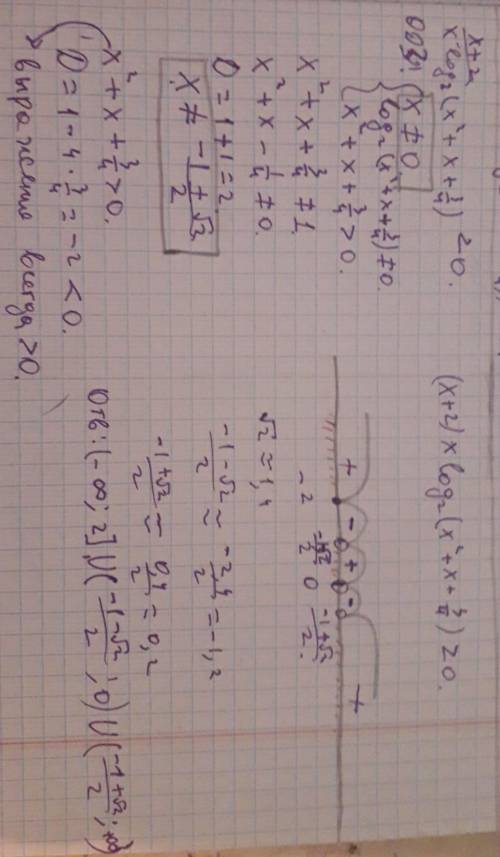 (x+2)/(x log₂(x²+x+3/4)) ≥ 0.
ОДЗ: {x ≠ 0
log₂(x²+x+3/4) ≠ 0.
x+x+3/4 > 0.
x²+x+3/4 ≠ 1
x²+x-1/4 ≠ 0.
D = 1+1 = 2
x ≠ (-1±√2)/2
x²+x+3/4 > 0.
D = 1-4·3/4 = -2 < 0.
выражение всегда > 0.
(x+2) x log₂(x²+x+3/4) ≥ 0.
+ - + - +
-2 (-1-√2)/2 0 (-1+√2)/2.
√2 ≈ 1,4
(-1-√2)/2 ≈ (-2,4)/2 = -1,2
(-1+√2)/2 ≈ 0,4/2 = 0,2
Отв: (-∞; 2] U ((-1-√2)/2; 0) U ((-1+√2)/2; +∞)